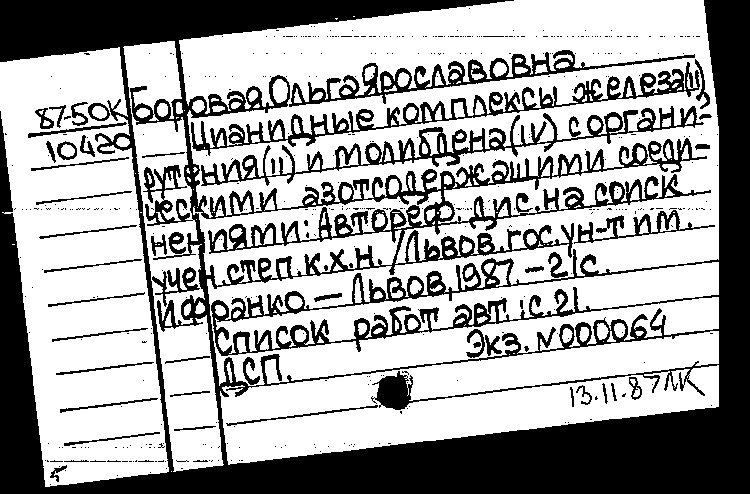 87-50к Боровая, Ольга Ярославовна.
10420 Цианидные комплексы железа(II)
рутения(II) и молибдена(IV) с органи-
ческими азотсодержащими соеди-
нениями: Автореф. дис. на соиск.
учен. степ. к.х.н. /Львов. гос. ун-т им.
И. Франко. — Львов, 1987. — 21с.
Список работ авт.: с. 21.
Экз. N000064.
ДСП.
13.11.87ЛК
5